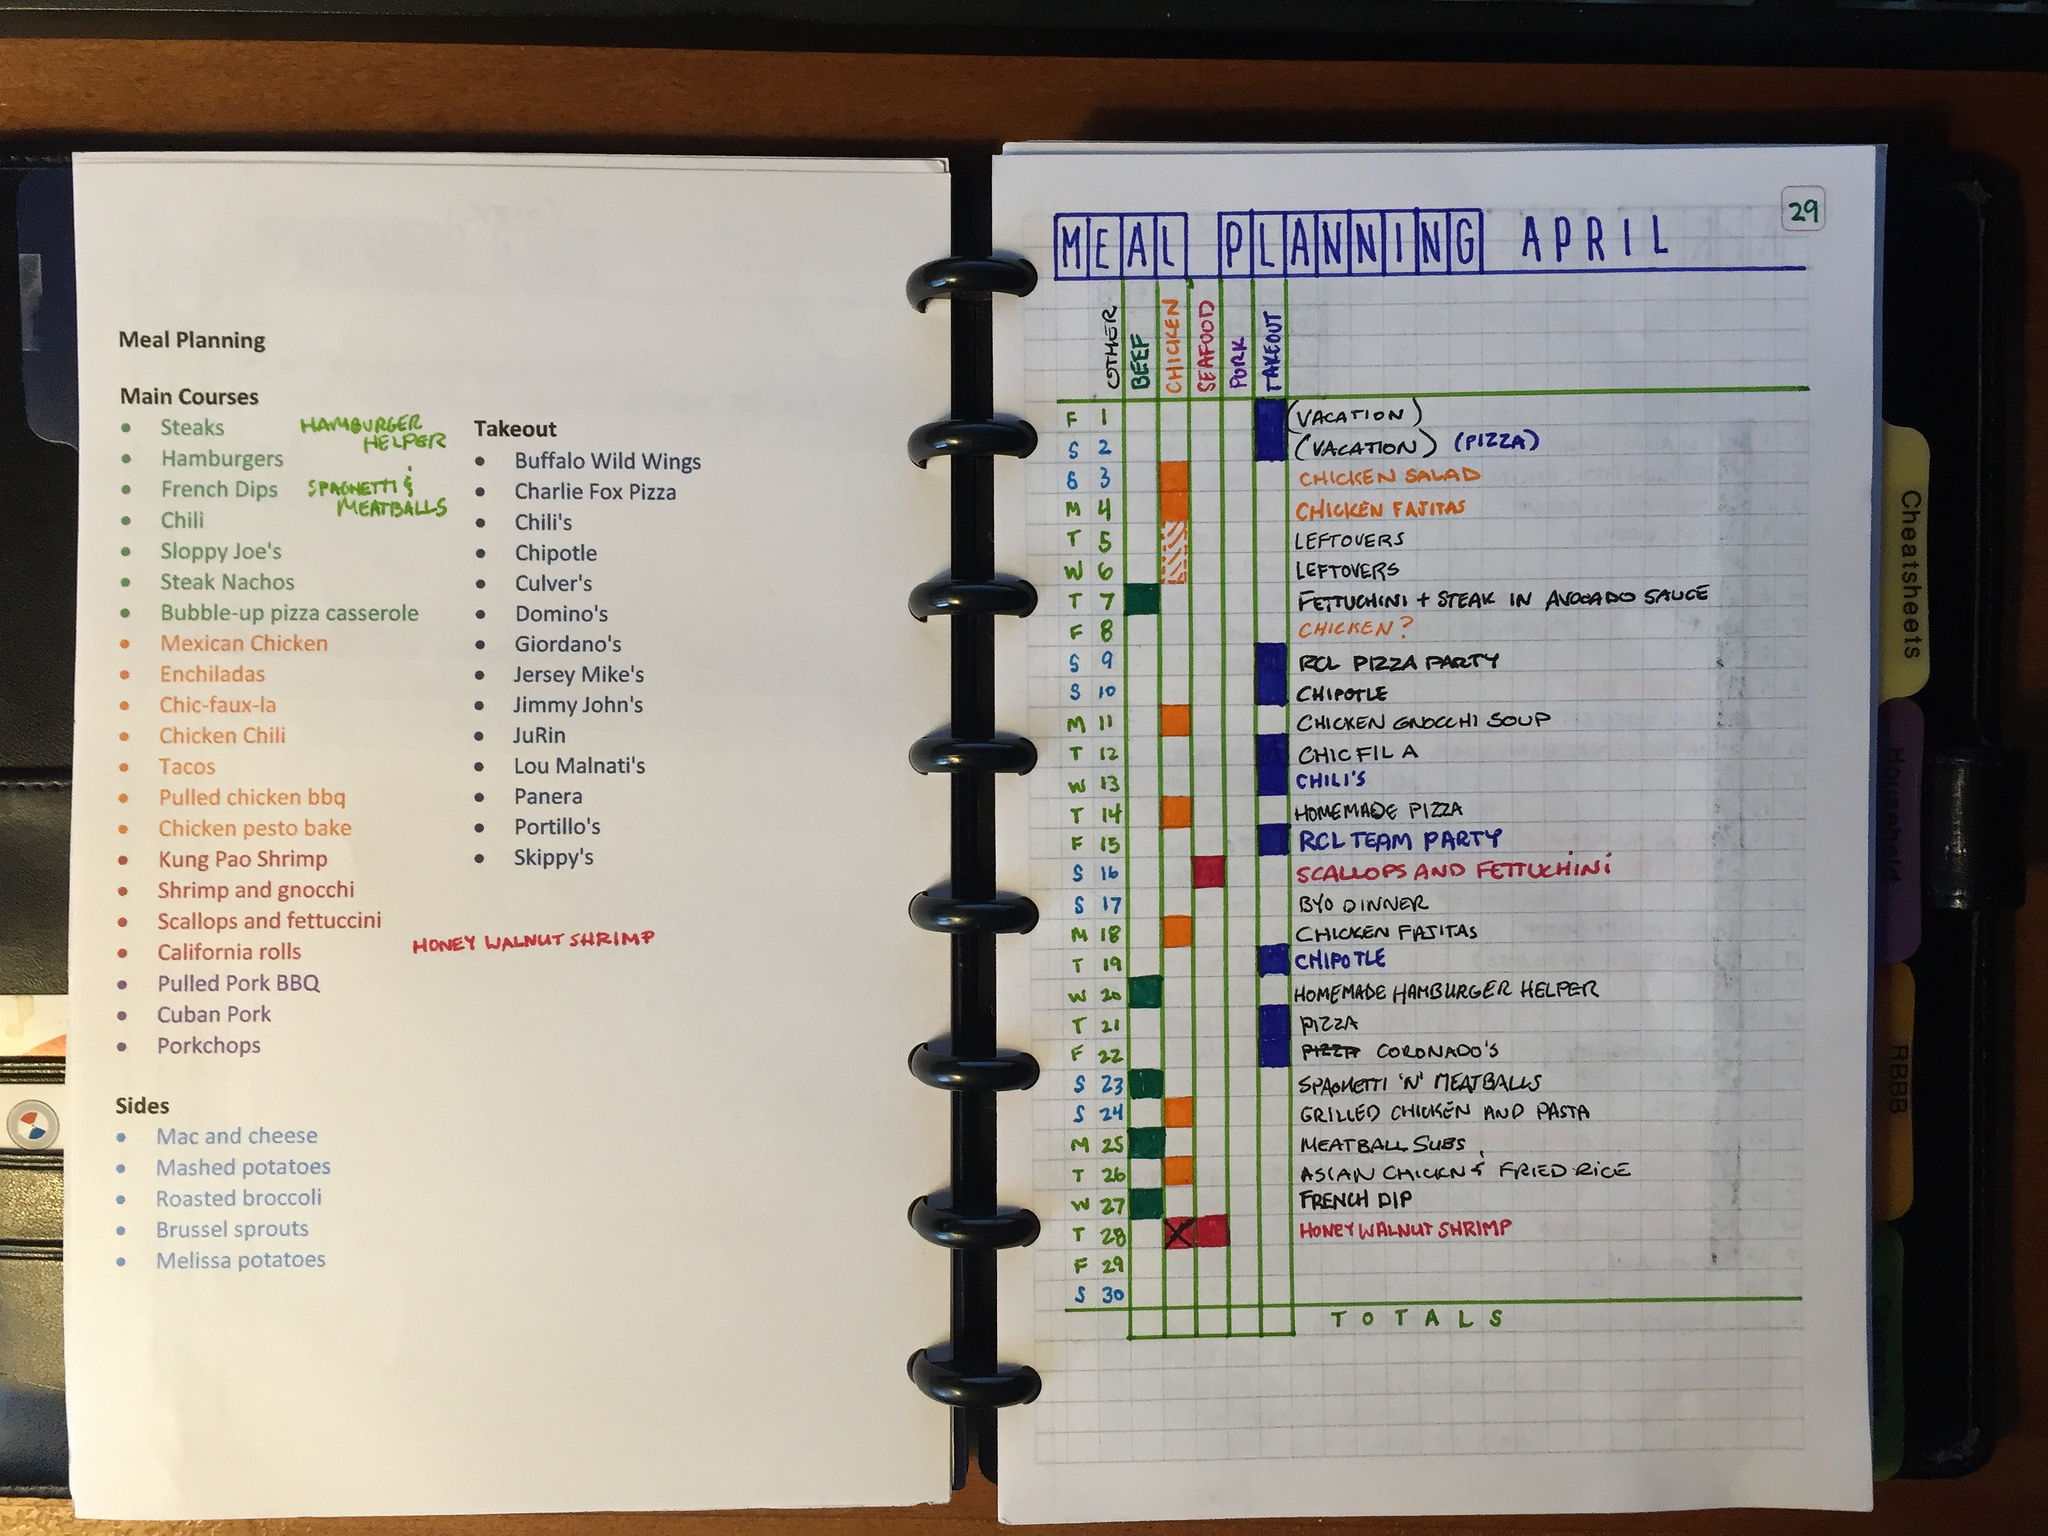 Meal Planning
Main Courses
Steaks
Hamburgers
French Dips
Chili
Sloppy Joe's
Steak Nachos
Bubble-up pizza casserole
Mexican Chicken
Enchiladas
Chic-faux-la
Chicken Chili
Tacos
Pulled chicken bbq
Chicken pesto bake
Kung Pao Shrimp
Shrimp and gnocchi
Scallops and fettuccini
California rolls
Pulled Pork BBQ
Cuban Pork
Porkchops
HAMBURGER
HELPER
SPAGHETTI &
MEATBALLS
HONEY WALNUT SHRIMP
Takeout
Buffalo Wild Wings
Charlie Fox Pizza
Chili's
Chipotle
Culver's
Domino's
Giordano's
Jersey Mike's
Jimmy John's
JuRin
Lou Malnati's
Panera
Portillo's
Skippy's
Sides
Mac and cheese
Mashed potatoes
Roasted broccoli
Brussel sprouts
Melissa potatoes
29
MEAL PLANNING APRIL
OTHER BEEF CHICKEN SEAFOOD PORK TAKEOUT
F 1 (VACATION)
S 2 (VACATION) (PIZZA)
S 3 CHICKEN SALAD
M 4 CHICKEN FAJITAS
T 5 LEFTOVERS
W 6 LEFTOVERS
T 7 FETTUCHINI + STEAK IN AVOCADO SAUCE
F 8 CHICKEN?
S 9 RCL PIZZA PARTY
S 10 CHIPOTLE
M 11 CHICKEN GNOCCHI SOUP
T 12 CHIC FIL A
W 13 CHILI'S
T 14 HOMEMADE PIZZA
F 15 RCL TEAM PARTY
S 16 SCALLOPS AND FETTUCHINI
S 17 BYO DINNER
M 18 CHICKEN FAJITAS
T 19 CHIPOTLE
W 20 HOMEMADE HAMBURGER HELPER
T 21 PIZZA
F 22 PIZZA CORONADO'S
S 23 SPAGHETTI 'N' MEATBALLS
S 24 GRILLED CHICKEN AND PASTA
M 25 MEATBALL SUBS
T 26 ASIAN CHICKN & FRIED RICE
W 27 FRENCH DIP
T 28 HONEY WALNUT SHRIMP
F 29
S 30
TOTALS
Cheatsheets
Household
RBBB